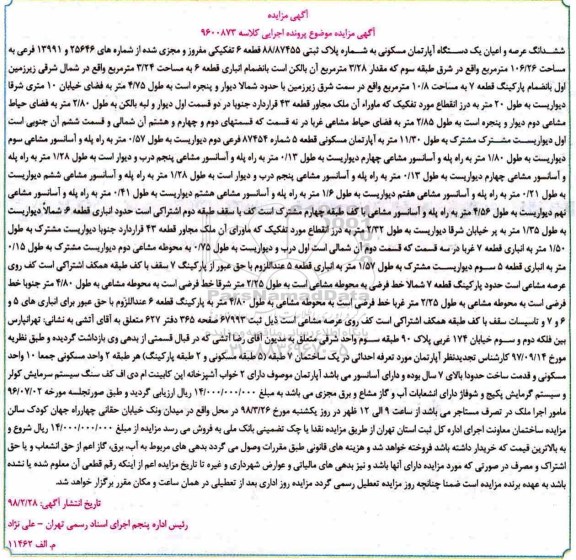 آگهی مزایده
آگهی مزایده موضوع پرونده اجرایی کلاسه ۹۶۰۰۸۷۳
ششدانگ عرصه و اعیان یک دستگاه آپارتمان مسکونی به شماره پلاک ثبتی ۸۸/۸۷۴۵۵ قطعه ۶ تفکیکی مفروز و مجزی شده از شماره های ۲۵۶۴۶ و ۱۳۹۹۱ فرعی به
مساحت ۱۰۶/۲۶ مترمربع واقع در شرق طبقه سوم که مقدار ۳/۲۸ مترمربع آن بالکن است بانضمام انباری قطعه ۶ به مساحت ۳/۲۴ مترمربع واقع در شمال شرقی زیرزمین
اول بانضمام پارکینگ قطعه ۷ به مساحت ۱۰/۸ مترمربع واقع در سمت شرق زیرزمین با حدود شمالا دیوار و پنجره است به طول ۴/۷۵ متر به فضای خیابان ۱۰ متری شرقا
دیواریست به طول ۲۰ متر به درز انقطاع مورد تفکیک که ماوراء آن ملک مجاور قطعه ۴۳ قرارداردد جنوبا در دو قسمت اول دیوار و لبه بالکن به طول ۲/۸۰ متر به فضای حیاط
مشاعی دوم دیوار و پنجره است به طول ۲/۸۵ متر به فضای حیاط مشاعی غربا در نه قسمت که قسمتهای دوم و چهارم و هشتم آن شمالی و قسمت ششم آن جنوبی است
اول دیواریست مشترک مشترک به طول ۱۱/۳۰ متر به آپارتمان مسکونی قطعه ۵ شماره ۸۷۴۵۴ فرعی دوم دیواریست به طول ۰/۵۷ متر به راه پله و آسانسور مشاعی سوم
دیواریست به طول ۱/۸۰ متر به راه پله و آسانسور مشاعی چهارم دیواریست به طول ۰/۱۳ متر به راه پله و آسانسور مشاعی پنجم درب و دیوار است به طول ۱/۲۸ متر به راه پله
و آسانسور مشاعی چهارم دیواریست به طول ۰/۱۳ متر به راه پله و آسانسور مشاعی پنجم درب و دیوار است به طول ۱/۲۸ متر به راه پله و آسانسور مشاعی ششم دیواریست
به طول ۰/۲۱ متر به راه پله و آسانسور مشاعی هفتم دیواریست به طول ۱/۶ متر به راه پله و آسانسور مشاعی هشتم دیواریست به طول ۰/۴۱ متر به راه پله و آسانسور مشاعی
نهم دیواریست به طول ۴/۵۶ متر به راه پله و آسانسور مشاعی با کف طبقه چهارم مشترک است کف با سقف طبقه دوم اشتراکی است حدود انباری قطعه ۶: شمالاً دیواریست
به طول ۱/۳۵ متر به پر خیابان شرقا دیواریست به طول ۲/۳۲ متر به درز انقطاع مورد تفکیک که ماورای آن ملک مجاور قطعه ۴۳ قراردارد جنوبا دیواریست مشترک به طول
۱/۵۰ متر به انباری قطعه ۷ غربا در سه قسمت که قسمت دوم آن شمالی است اول درب و دیواریست به طول ۰/۷۵ به محوطه مشاعی دوم دیواریست مشترک به طول ۰/۱۵
متر به انباری قطعه ۵ سوم دیواریست مشترک به طول ۱/۵۷ متر به انباری قطعه ۵ عنداللزوم با حق عبور از پارکینگ ۷ سقف با کف طبقه همکف اشتراکی است کف روی
عرصه مشاعی است حدود پارکینگ قطعه ۷ شمالا خط فرضی به محوطه مشاعی است به طول ۲/۲۵ متر شرقا خط فرضی است به محوطه مشاعی به طول ۴/۸۰ متر جنوبا خط
فرضی است به محوطه مشاعی به طول ۲/۲۵ متر غربا خط فرضی است به محوطه مشاعی به طول ۴/۸۰ متر به پارکینگ قطعه ۶ عنداللزوم با حق عبور برای انباری های ۵ و
۶ و ۷ و تاسیسات سقف با کف طبقه همکف اشتراکی است کف روی عرصه مشاعی است ذیل ثبت ۶۷۹۹۳ صفحه ۳۶۵ دفتر ۶۲۷ متعلق به آقای آتشی به نشانی: تهرانپارس
بین فلکه دوم و سوم خیابان ۱۷۴ غربی پلاک ۹۰ طبقه سوم واحد شرقی متعلق به مدیون آقای رضا آتشی که در قبال قسمتی از بدهی وی بازداشت گردیده و طبق نظریه
مورخ ۹۷/۰۹/۱۴ کارشناس تجدیدنظر آپارتمان مورد تعرفه احداثی در یک ساختمان ۷ طبقه (۵ طبقه مسکونی و ۲ طبقه پارکینگ) هر طبقه ۲ واحد مسکونی جمعا ۱۰ واحد
مسکونی و قدمت ساخت حدودا بالای ۷ سال بوده و دارای آسانسور می باشد آپارتمان موصوف دارای ۲ خواب آشپزخانه اپن کابینت ام دی اف کف سنگ سیستم سرمایش کولر
و سیستم گرمایش پکیج و شوفاژ دارای انشعابات آب و گاز مشاع و برق مجزی می باشد به مبلغ ۱۴/۰۰۰/۰۰۰/۰۰۰ ریال ارزیابی گردید و طبق صورتجلسه مورخه ۹۶/۰۷/۰۲
مامور اجرا ملک در تصرف مستاجر می باشد از ساعت ۹ الی ۱۲ ظهر در روز یکشنبه مورخ ۹۸/۳/۲۶ در محل واقع در میدان ونک خیابان حقانی چهارراه جهان کودک سالن
مزایده ساختمان معاونت اجرای اداره کل ثبت استان تهران از طریق مزایده نقدا یا چک تضمینی بانک ملی به فروش می رسد مزایده از مبلغ ۱۴/۰۰۰/۰۰۰/۰۰۰ ریال شروع و
به بالاترین قیمت که خریدار داشته باشد فروخته خواهد شد و هزینه های قانونی طبق مقررات وصول می گردد بدهی های مربوط به آب، برق، گاز اعم از حق انشعاب و یا حق
اشتراک و مصرف در صورتی که مورد مزایده دارای آنها باشد و نیز بدهی های مالیاتی و عوارض شهرداری و غیره تا تاریخ مزایده اعم از اینکه رقم قطعی آن معلوم شده یا نشده
باشد به عهده برنده مزایده است ضمنا چنانچه روز مزایده تعطیل رسمی گردد مزایده روز اداری بعد از تعطیلی در همان ساعت و مکان مقرر برگزار خواهد شد.
تاریخ انتشار آگهی: ۹۸/۲/۲۸
رئیس اداره پنجم اجرای اسناد رسمی تهران - علی نژاد
م. الف ۱۱۴۶۲